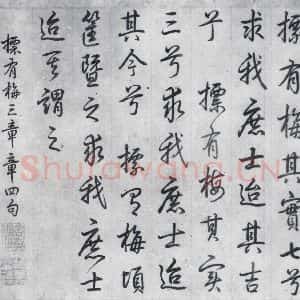 摽有梅其實七兮
求我庶士迨其吉
兮 摽有梅其實
三兮求我庶士迨
其今兮 摽有梅頃
筐塈之求我庶士
迨其謂之
摽有梅三章章四句
Shufawang.CN